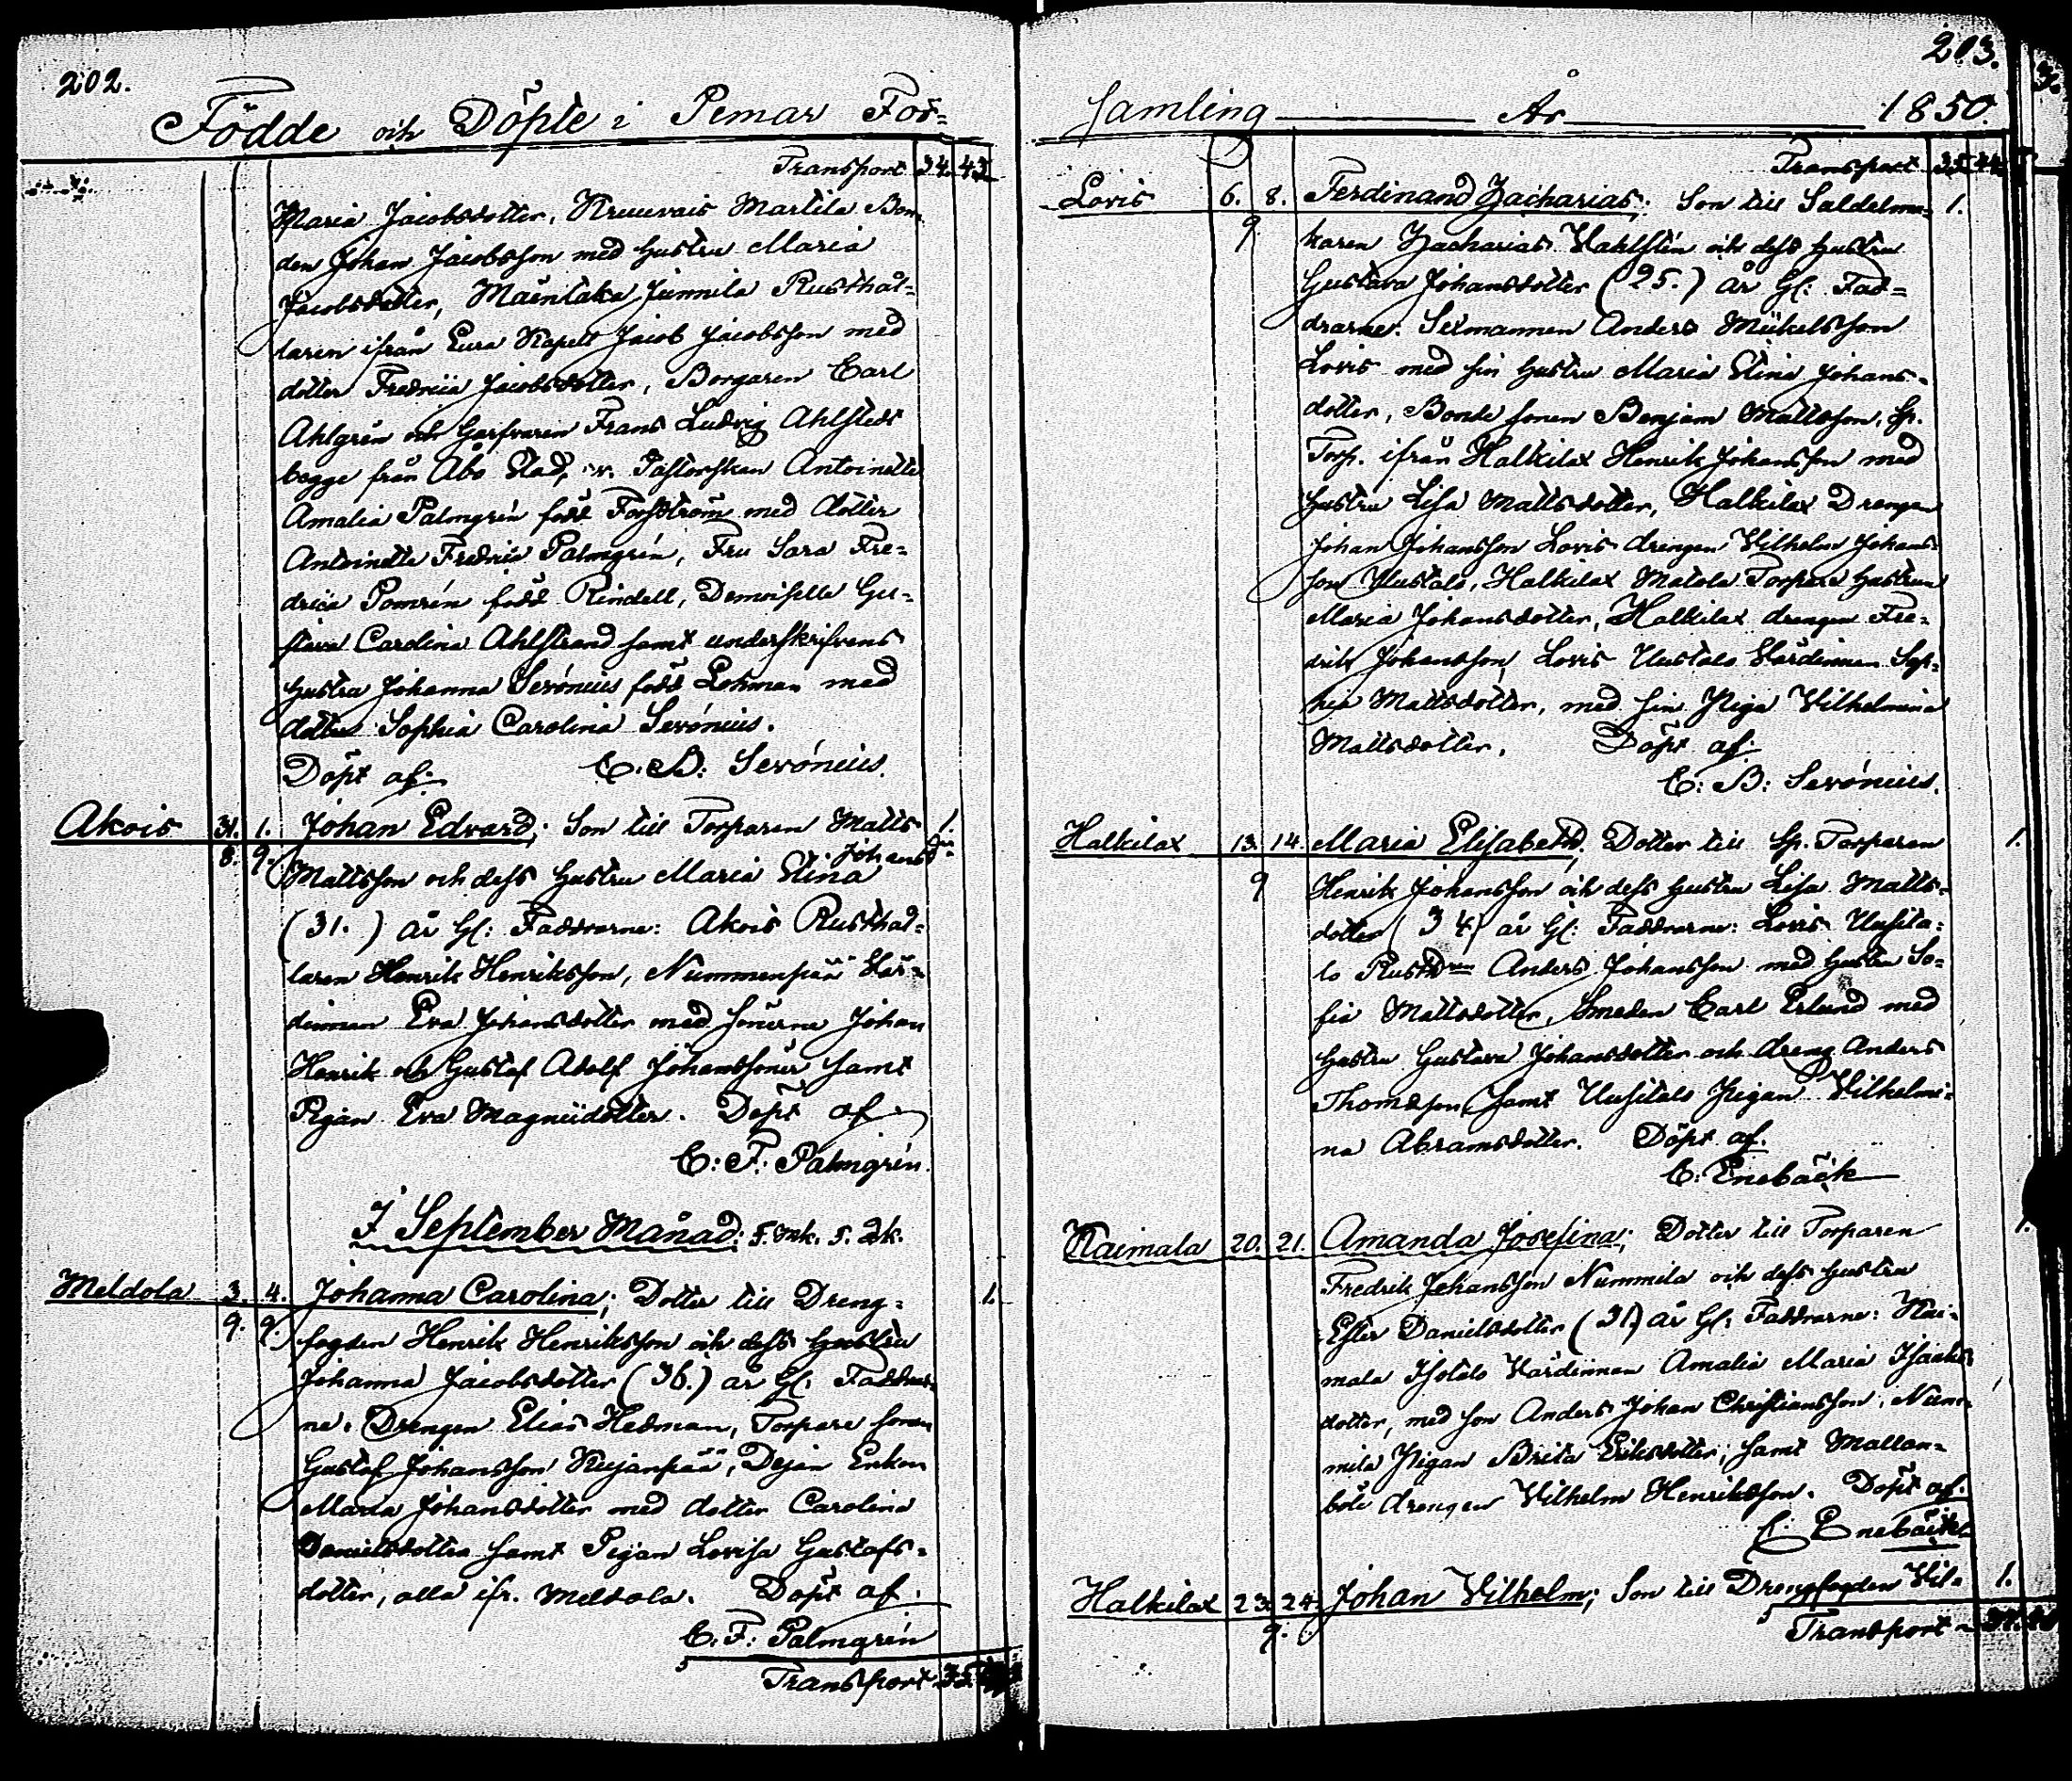 202.
Födde och Döpte i Pemar För=
Transport 34. 43
Maria Jacobsdotter, Kruuvais Martila Bon-
den Johan Jacobsson med hustru Maria
Jacobsdotter, Mäentaka Junnila Rusthål=
laren ifrån Eura Kapell Jacob Jacobsson med
dotter Fredrica Jacobsdotter, Borgaren Carl
Ahlgrén och Garfvaren Frans Ludvig Ahlstedt
begge från Åbo Stad, v. Pastorskan Antoinette
Amalia Palmgrén född Forsström med dotter
Antoinette Fredrica Palmgrén, Fru Sara Fre=
drica Pomrén född Rindell, Demoiselle Gu=
stava Carolina Ahlstrand samt underskrifvens
hustru Johanna Serónius född Lohman med
dotter Sophia Carolina Serónius.
Döpt af: C. B: Serónius.
Akois 31. 1. Johan Edvard; Son till Torparen Matts 1.
8. 9. Mattsson och dess hustru Maria Stina Johansd:r
(31.) år gl: Faddrarne: Akois Rusthål=
laren Henrik Henriksson, Nummenpää Vär=
dinnan Eva Johansdotter med Sönerne Johan
Henrik och Gustaf Adolf Johanssöner samt
Pigan Eva Magnidotter. Döpt af
C: F: Palmgrén.
I September Månad: 5. Mk. 5. Qk.
Meldola 3. 4. Johanna Carolina; Dotter till Dreng= 1.
9. 9. fogden Henrik Henriksson och dess hustru
Johanna Jacobsdotter (36.) år gl: Faddrar=
ne: Drengen Elias Hedman, Torpare sonen
Gustaf Johansson Kujanpää, Dejan Enkan
Maria Johansdotter med dotter Carolina
Danielsdotter samt Pigan Lovisa Gustafs=
dotter, alla ifr. Meldola. Döpt af.
C. F: Palmgrén
Transport 35.
203.
Samling År 1850.
Transport 35 44
Lovis 6. 8. Ferdinand Zacharias; Son till Sadelma= 1.
9 karen Zacharias Wahlstén och dess hustru
Gustava Johansdotter (25.) år gl: Fad=
drarne: Sexmannen Anders Mickelsson
Lovis med sin hustru Maria Stina Johans=
dotter, Bonde sonen Benjam Mattsson, Sp.
Torp. ifrån Halkilax Henrik Johansson med
hustru Lisa Mattsdotter, Halkilax Drengen
Johan Johansson Lovis drengen Vilhelm Johans
son Uustalo, Halkilax Matala Torpare hustrun
Maria Johansdotter, Halkilax drengen Fre=
drik Johansson, Lovis Uustalo Värdinnan Sop=
hia Mattsdotter, med sin Piga Vilhelmina
Mattsdotter. Döpt af.
C: B: Serónius.
Halkilax 13. 14. Maria Elisabeth; Dotter till Sp. Torparen 1.
9 Henrik Johansson och dess hustru Lisa Matts=
dotter (34) år gl: Faddrarne: Lovis Uusita=
lo Rusth:ren Anders Johansson med hustru So=
fia Mattsdotter, Smeden Carl Erlund med
hustru Gustava Johansdotter och dreng Anders
Thomasson, samt Uusitalo Pigan Vilhelmi=
na Abramsdotter. Döpt af.
C: Enebäck
Kaimala 20. 21. Amanda Josefina; Dotter till Torparen 1.
Fredrik Johansson Nummila och dess hustru
Ester Danielsdotter (31.) år gl: Faddrarne: Kai=
mala Isotalo Värdinnan Amalia Maria Isaaks
dotter, med son Anders Johan Christiansson, Num=
mila Pigan Brita Eriksdotter; samt Mallan=
böle drengen Vilhelm Henriksson. Döpt af.
C: Enebäck
Halkilax 23. 24. Johan Vilhelm; Son till Drengfogden Vil= 1.
9. Transport